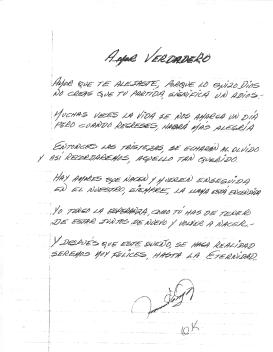 Amor VERDADERO
AMOR QUE TE ALEJASTE, PORQUE LO QUIZO DIOS
NO CREAS QUE TU PARTIDA, SIGNIFICA UN ADIOS.-
MUCHAS VECES LA VIDA SE NOS AMARGA UN DÍA
PERO CUANDO REGRESES, HABRÁ MAS ALEGRIA
ENTONCES LAS TRISTEZAS, SE ECHARÁN AL OLVIDO
Y ASI RECORDAREMOS, AQUELLO TAN QUERIDO.
HAY AMORES QUE NACEN Y MUEREN ENSEGUIDA
EN EL NUESTRO, SIEMPRE, LA LLAMA ESTÁ ENCENDIDA
YO TENGO LA ESPERANZA, COMO TÚ HAS DE TENER
DE ESTAR JUNTOS DE NUEVO Y VOLVER A NACER.-
Y DESPUES QUE ESTE SUEÑO, SE HAGA REALIDAD
SEREMOS MUY FELICES, HASTA LA ETERNIDAD.
10K